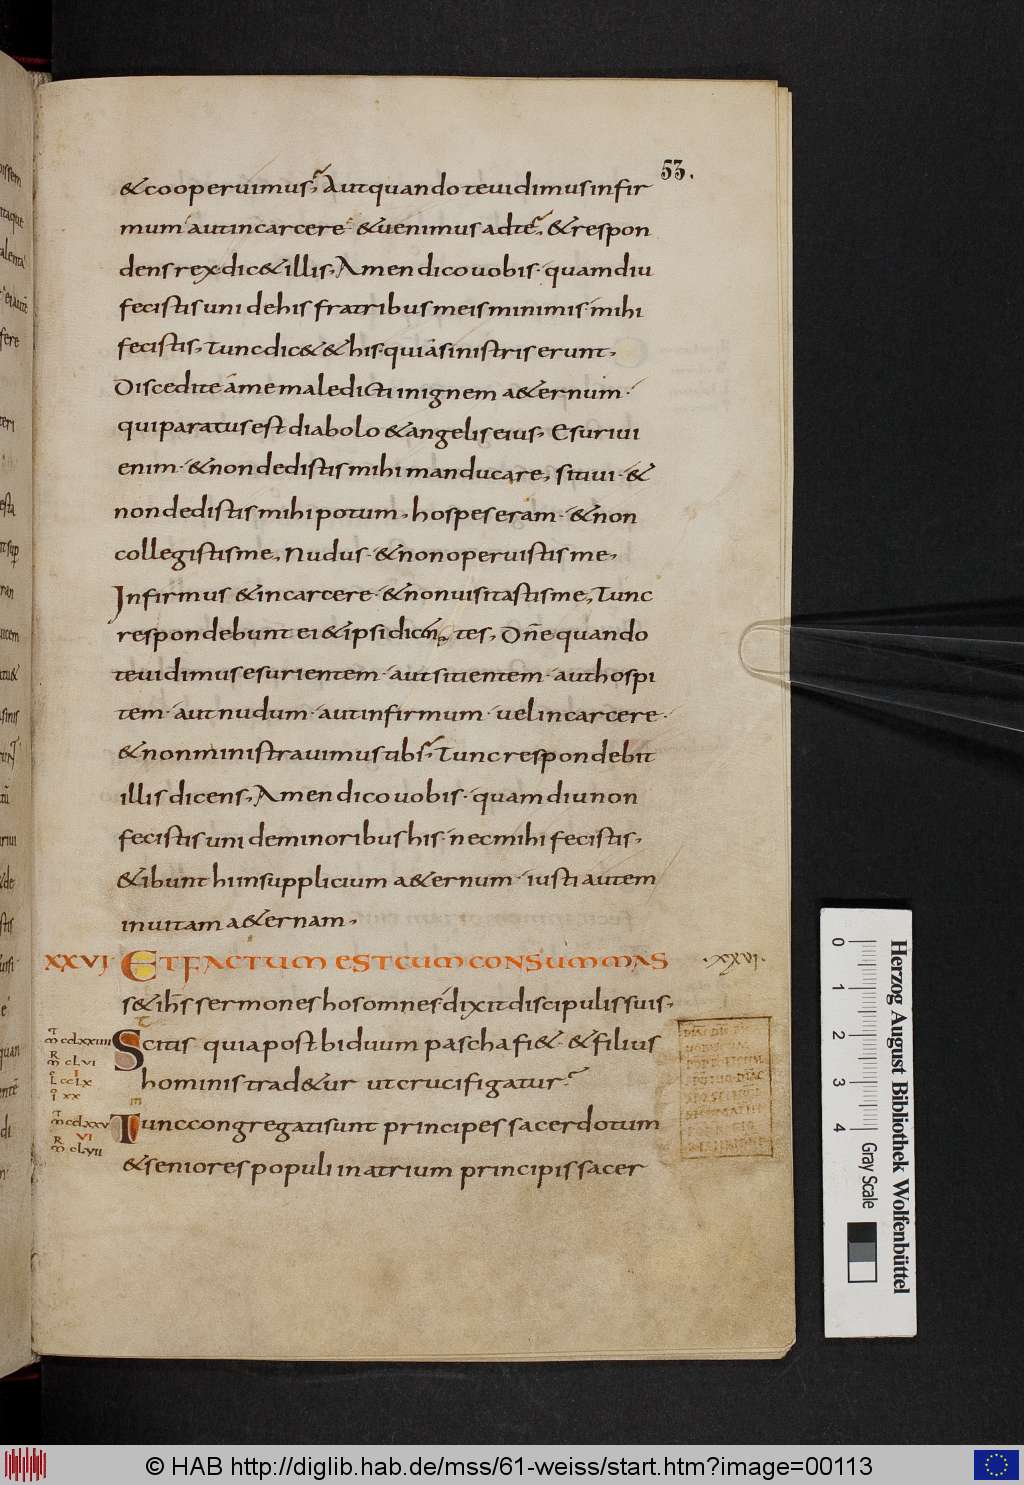 53.
& cooperuimus, Aut quando te uidimus infir
mum aut in carcere & uenimus ad te, & respon
dens rex dic& illis, Amen dico uobis quamdiu
fecistis uni de his fratribus meis minimis mihi
fecistis, Tunc dic& & his qui a sinistris erunt,
Discedite a me maledicti in ignem a&ernum
qui paratus est diabolo & angelis eius, Esuriui
enim & non dedistis mihi manducare, sitiui &
non dedistis mihi potum, hospes eram & non
collegistis me, Nudus & non operuistis me,
Infirmus & in carcere & non uisitastis me, Tunc
respondebunt ei & ipsi dicen tes, Dñe quando
te uidimus esurientem aut sitientem aut hospi
tem aut nudum aut infirmum uel in carcere
& non ministrauimus tibi, Tunc respondebit
illis dicens, Amen dico uobis quamdiu non
fecistis uni de minoribus his nec mihi fecistis,
& ibunt hi in supplicium a&ernum iusti autem
in uitam a&ernam,
XXVI ET FACTUM EST CUM CONSUMMAS
.xxvi.
s& ih̄s sermones hos omnes dixit discipulis suis,
Scitis quia post biduum pascha fi& & filius
hominis trad&ur ut crucifigatur
Tunc congregati sunt principes sacerdotum
& seniores populi in atrium principis sacer
0 1 2 3 4
Herzog August Bibliothek Wolfenbüttel
Gray Scale
© HAB http://diglib.hab.de/mss/61-weiss/start.htm?image=00113